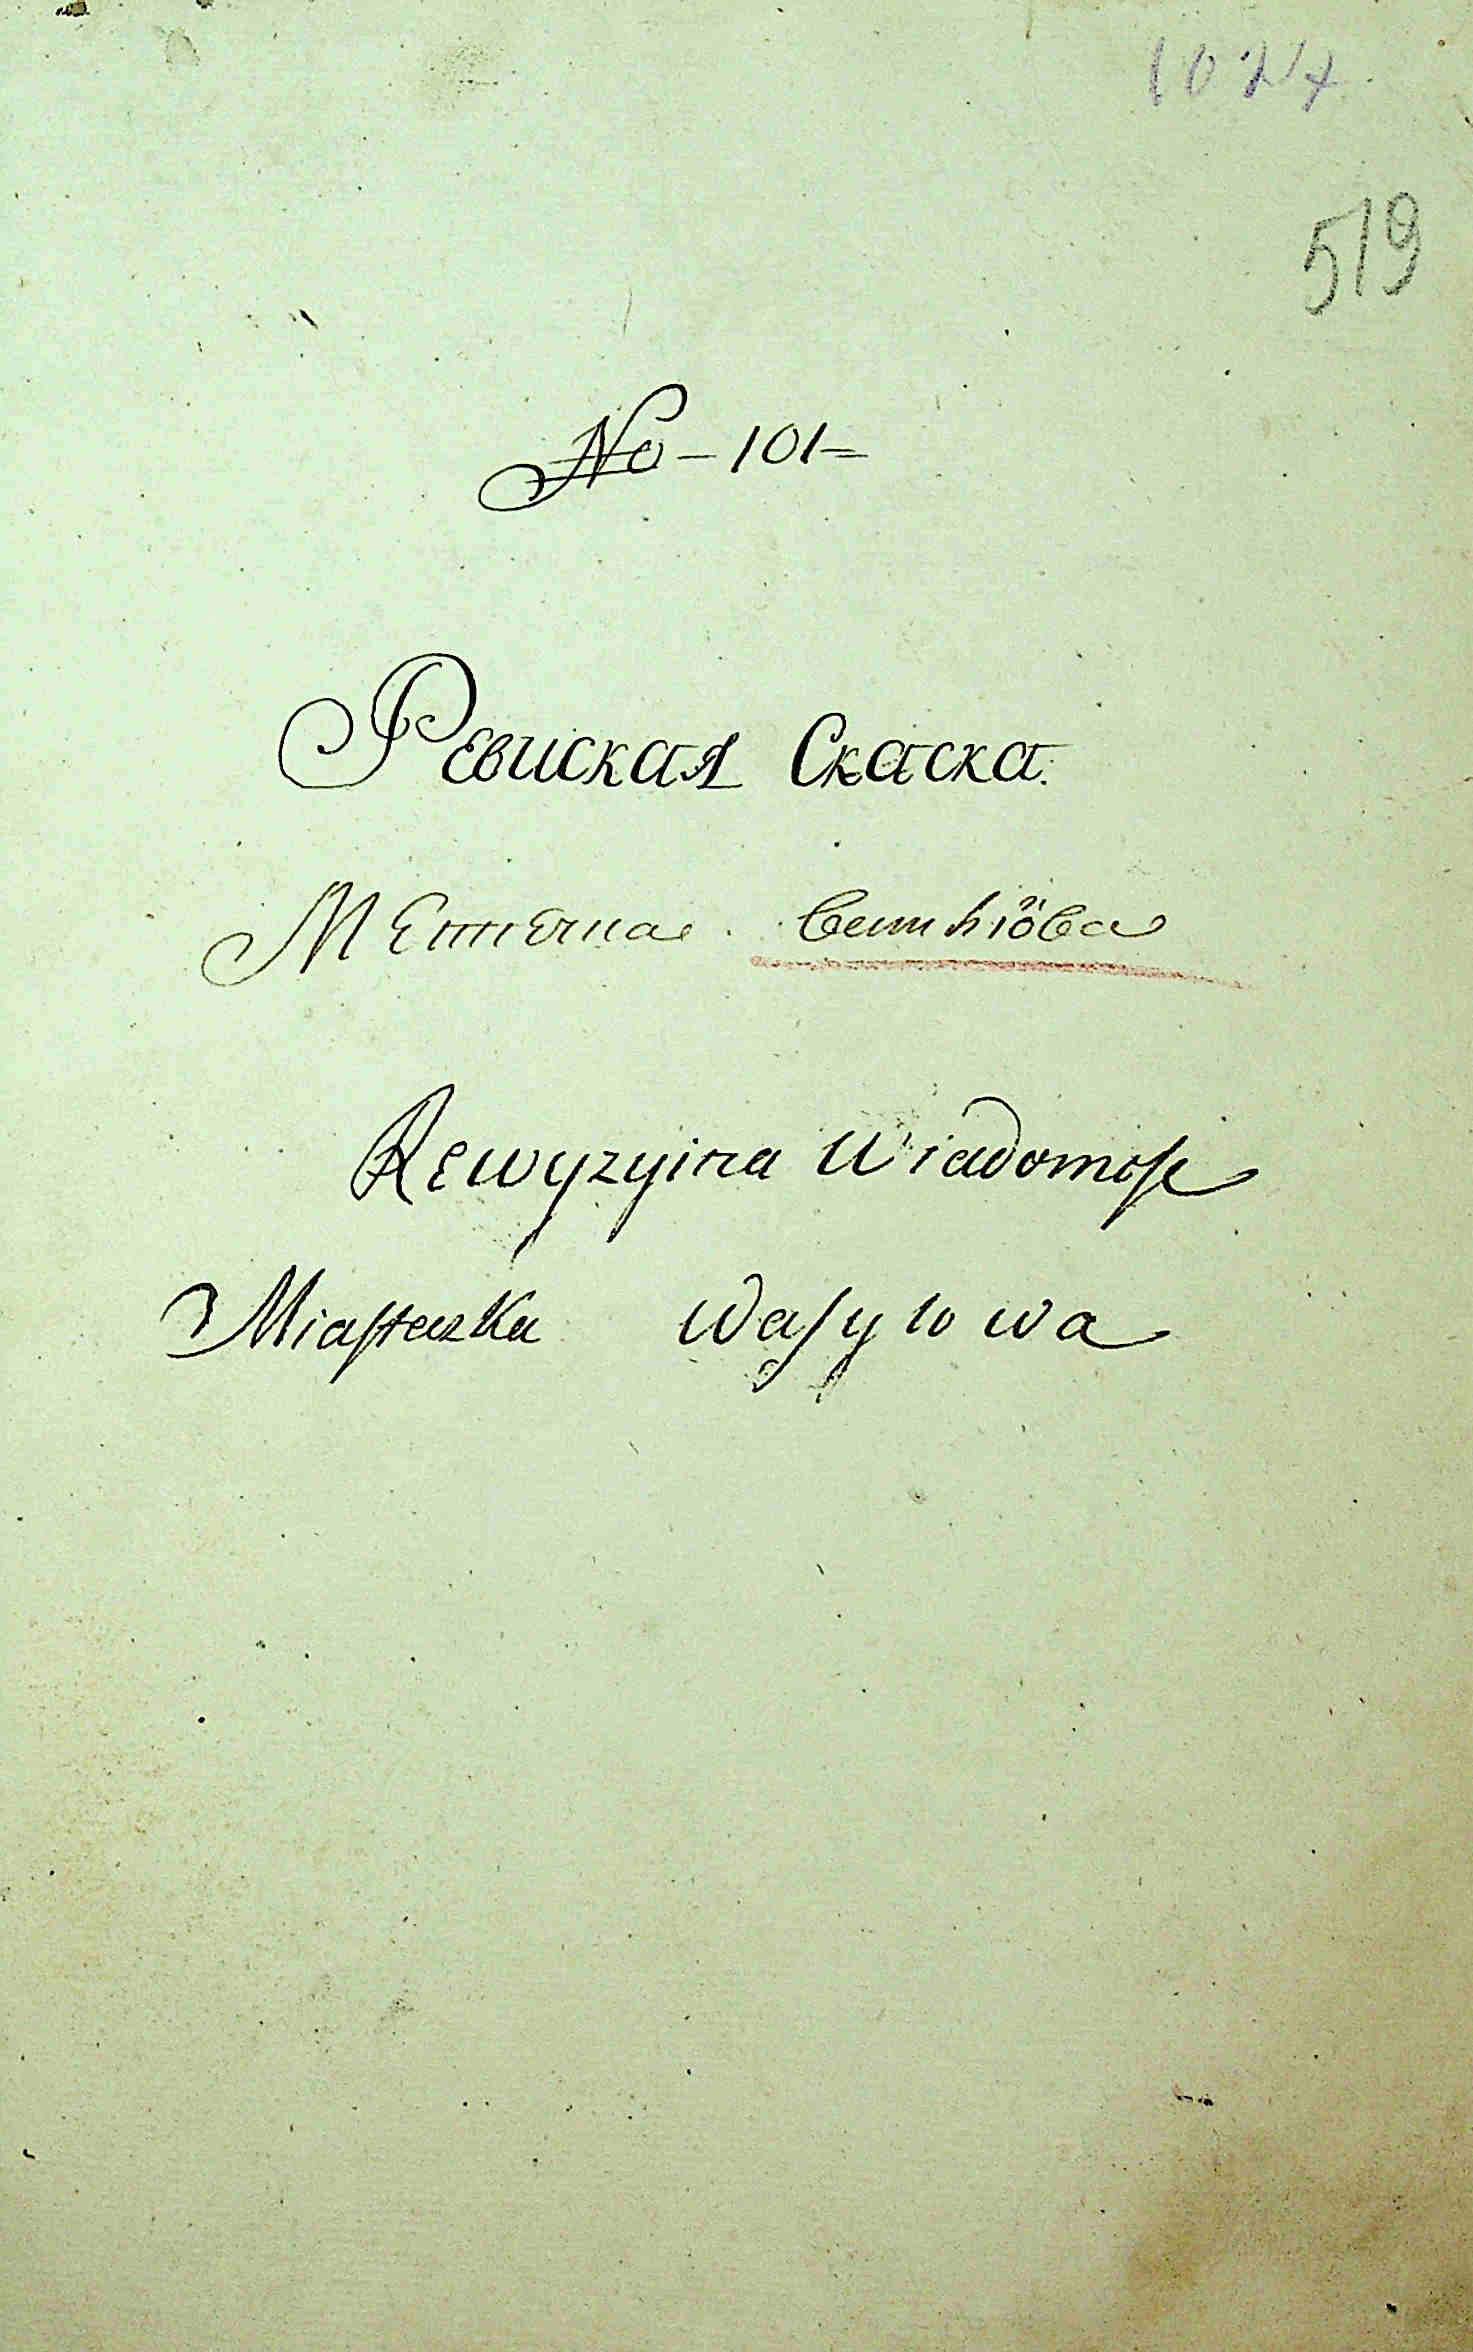 1024
519
No – 101 =
Ревиская Скаска.
Местечка
Rewyzyina Wiadomość
Miasteczka Wasylowa